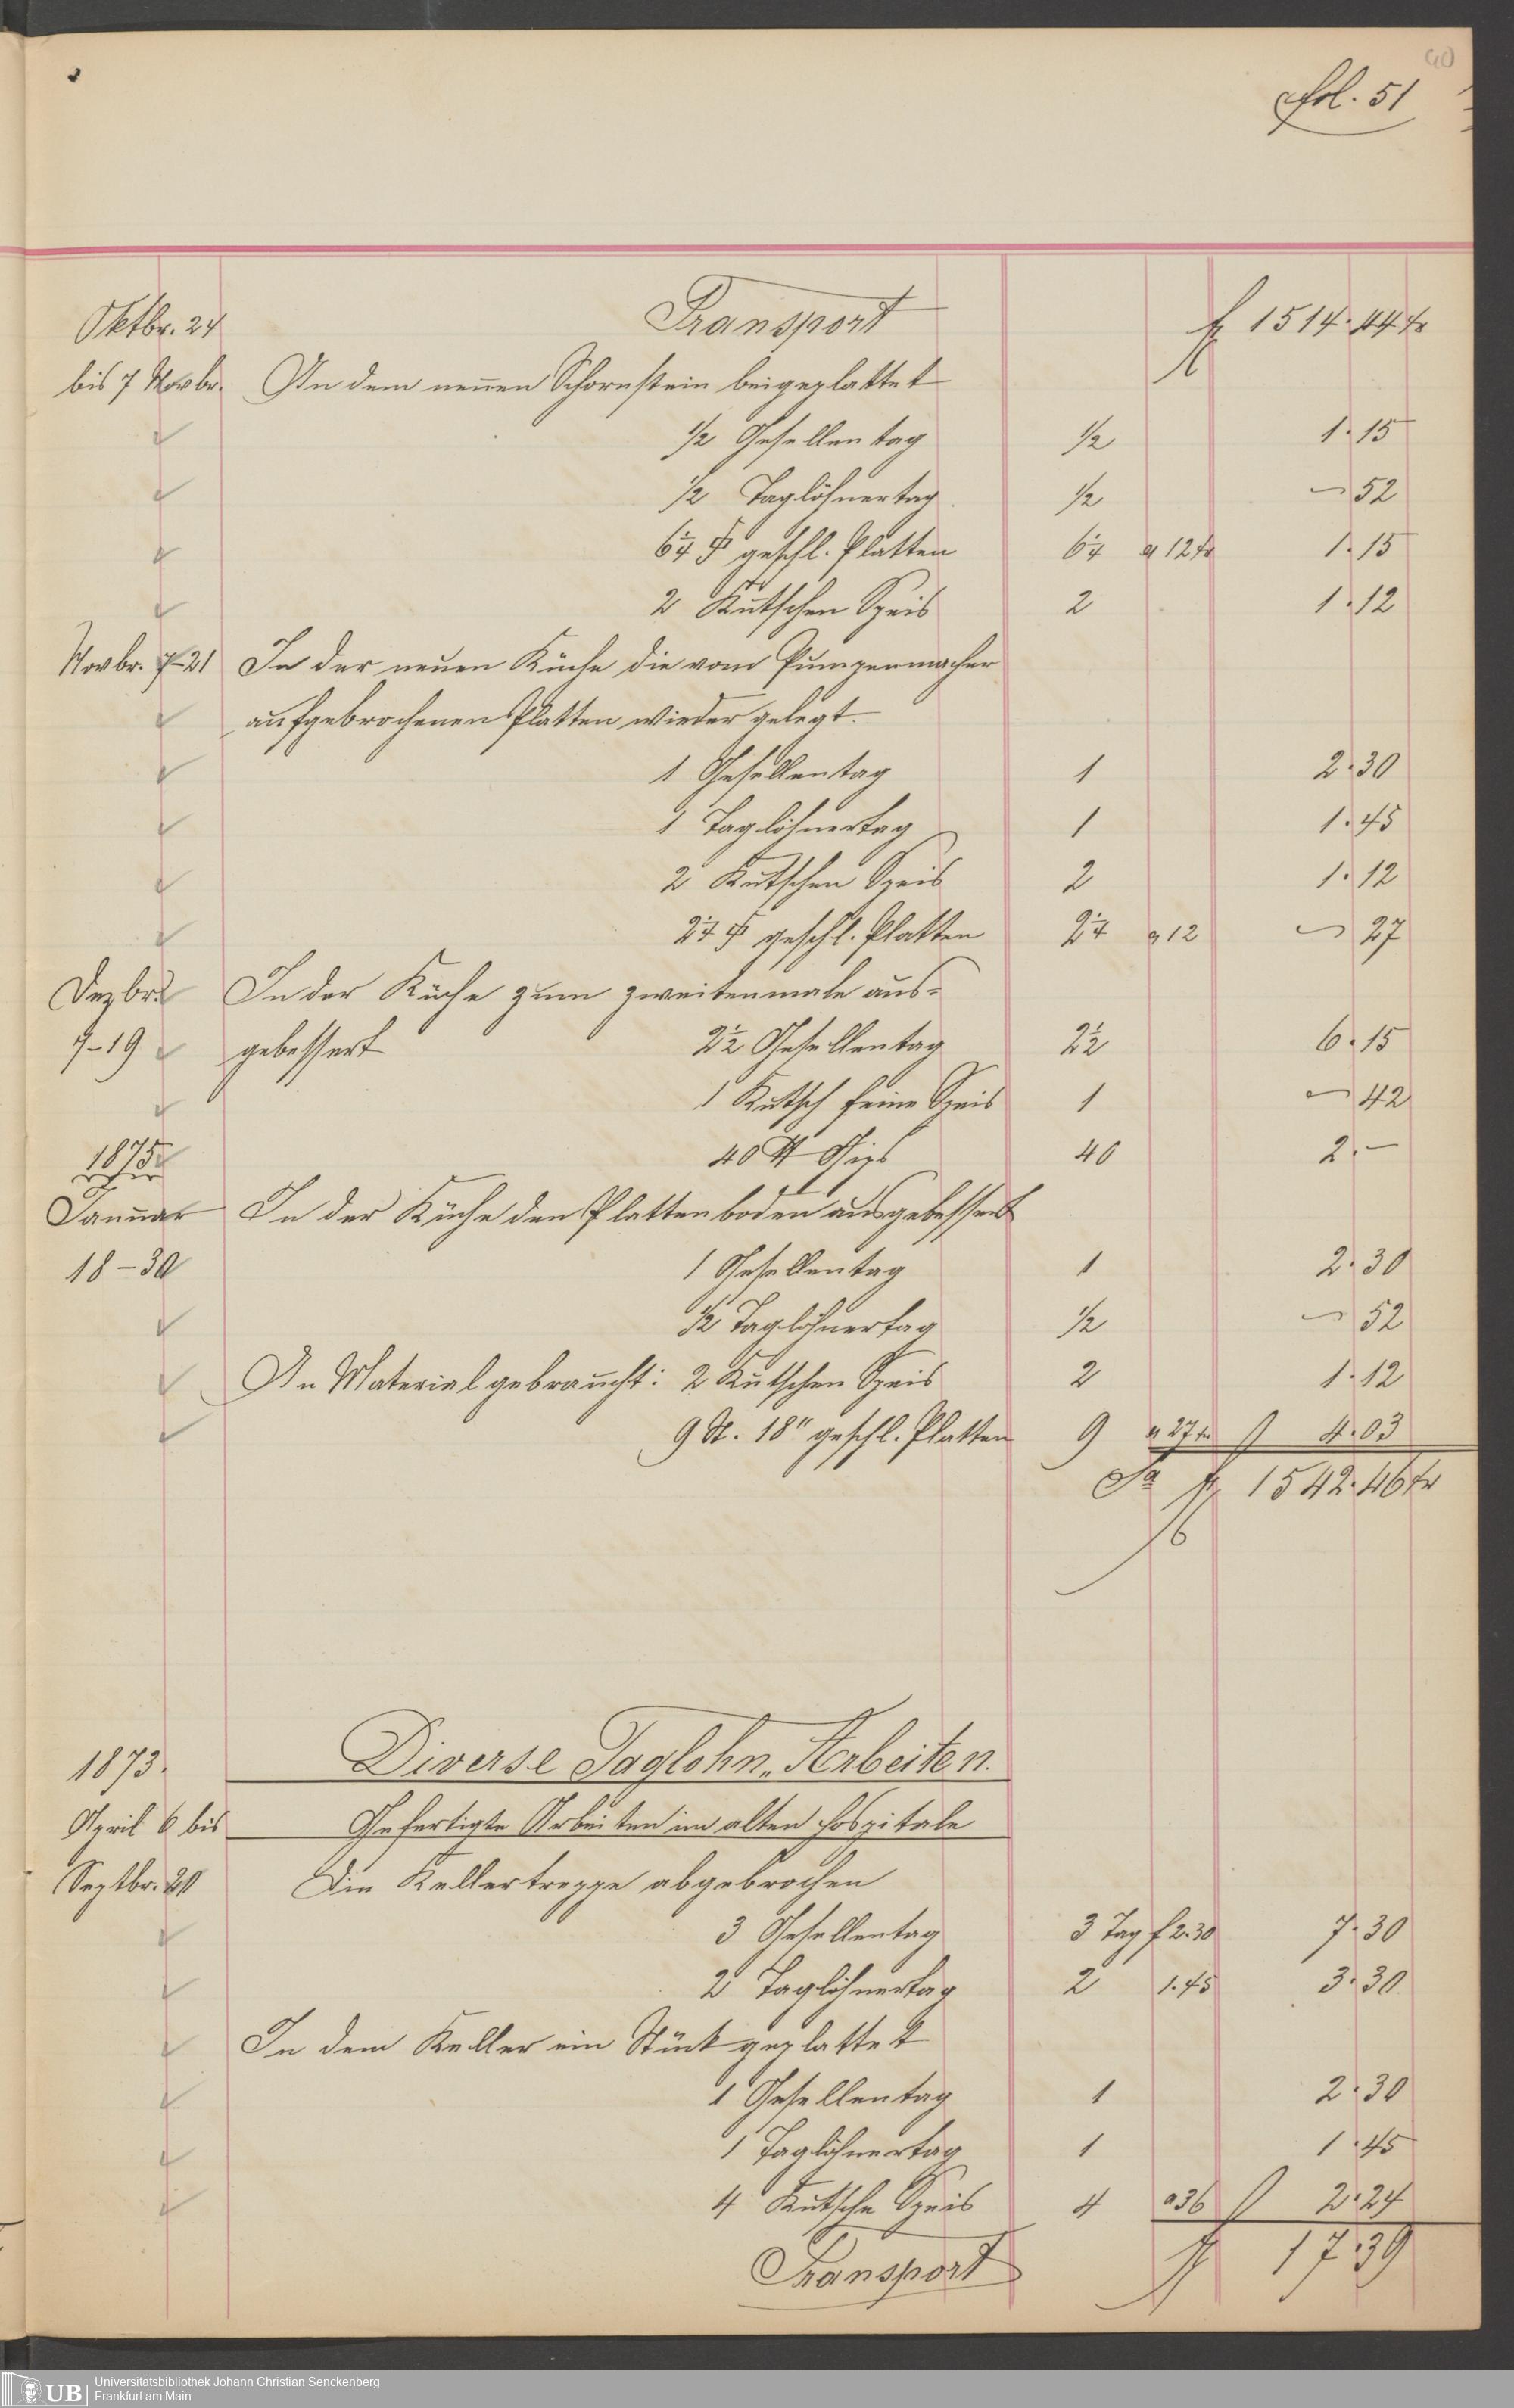 40
fol. 51
Oktbr. 24 Transport f 1514. 44 kr
bis 7 Novbr. An dem neuen Schornstein beigeplattet
1/2 Gesellentag 1/2 1. 15
1/2 Taglöhnertag 1/2 – 52
6 1/4 geschl. Platten 6 1/4 a 12 kr 1. 15
2 Kutschen Speis 2 1. 12
Novbr. 7–21 In der neuen Küche die vom Pumpenmacher
aufgebrochenen Platten wieder gelegt.
1 Gesellentag 1 2. 30
1 Taglöhnertag 1 1. 45
2 Kutschen Speis 2 1. 12
2 1/4 geschl. Platten 2 1/4 a 12 – 27
Dezbr. In der Küche zum zweitenmale aus-
7–19 gebessert 2 1/2 Gesellentag 2 1/2 6. 15
1 Kutsch feine Speis 1 – 42
1875 40 ℔ Gips 40 2. –
Januar In der Küche den Plattenboden ausgebessert
18–30 1 Gesellentag 1 2. 30
1/2 Taglöhnertag 1/2 – 52
An Material gebraucht: 2 Kutschen Speis 2 1. 12
9 St. 18" geschl. Platten 9 a 27 kr 4. 03
Sa f 1542. 46 kr
1873. Diverse Taglohn-Arbeiten.
April 6 bis Gefertigte Arbeiten im alten Hospitale
Septbr. 20 Die Kellertreppe abgebrochen
3 Gesellentag 3 Tag f 2.30 7. 30
2 Taglöhnertag 2 1.45 3. 30
In dem Keller ein Stück geplattet
1 Gesellentag 1 2. 30
1 Taglöhnertag 1 1. 45
4 Kutsche Speis 4 a 36 2. 24
Transport f 17. 39
UB Universitätsbibliothek Johann Christian Senckenberg
Frankfurt am Main